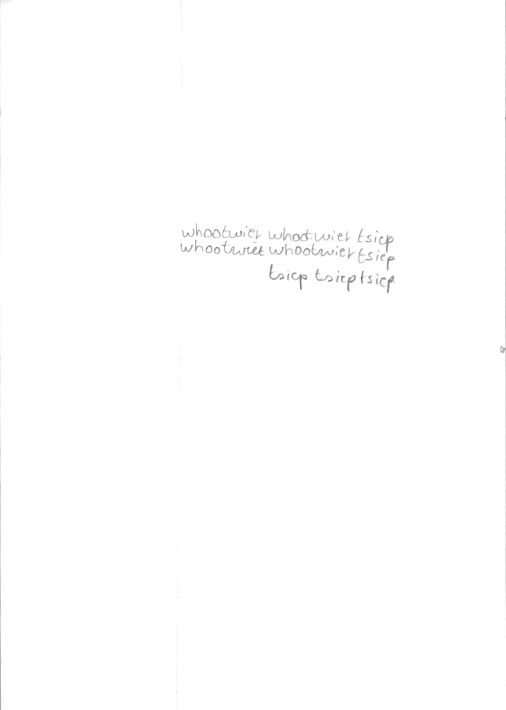 whootwiet whootwiet tsiep
whootwiet whootwiet tsiep
tsiep tsiep tsiep